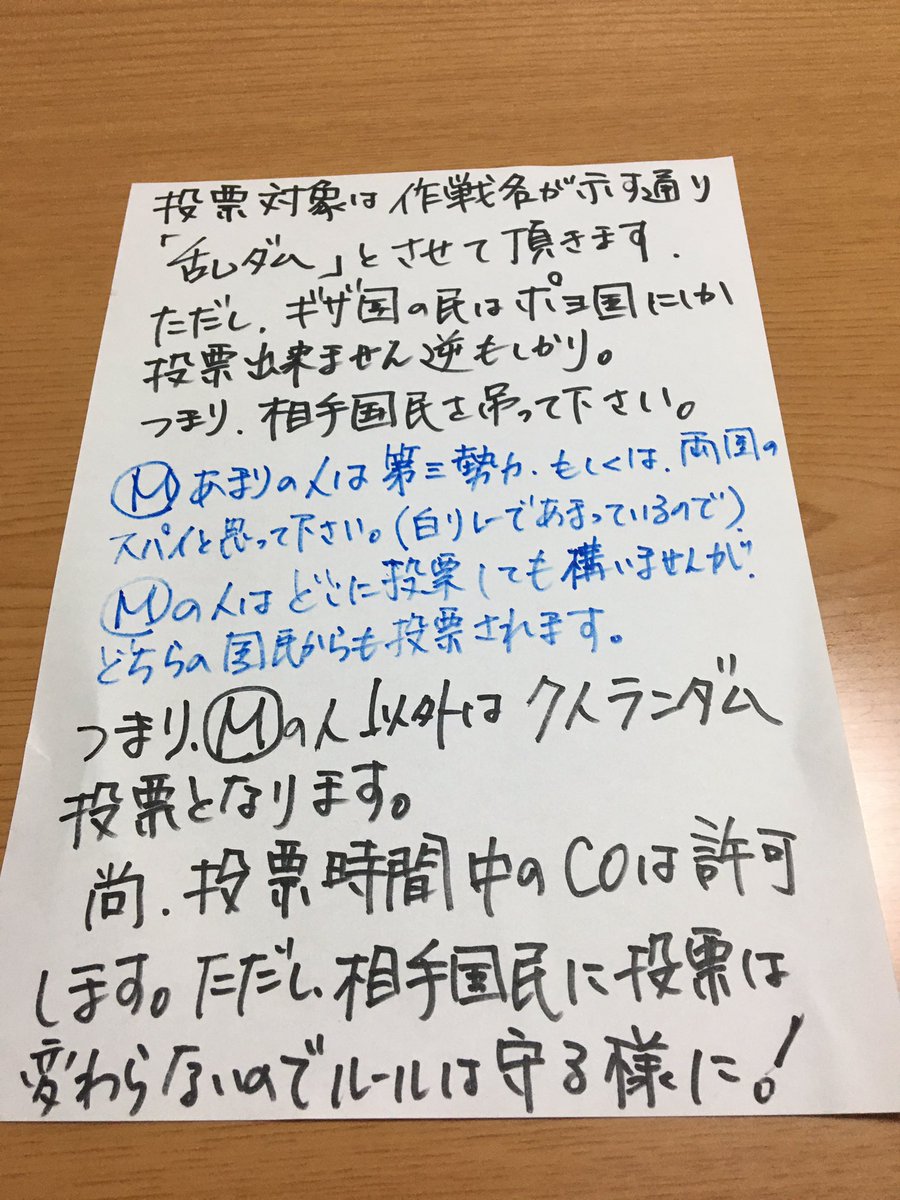 投票対象は作戦名が示す通り
「乱ダム」とさせて頂きます.
ただし、ギザ国の民はポヨ国にしか
投票出来ません逆もしかり。
つまり、相手国民を吊って下さい。
Ⓜあまりの人は第三勢力、もしくは、両国の
スパイと思って下さい。(白リレーであまっているので)
Ⓜの人はどこに投票しても構いませんが、
どちらの国民からも投票されます。
つまり、Ⓜの人以外は7人ランダム
投票となります。
尚、投票時間中のCOは許可
します。ただし、相手国民に投票は
変わらないのでルールは守る様に!